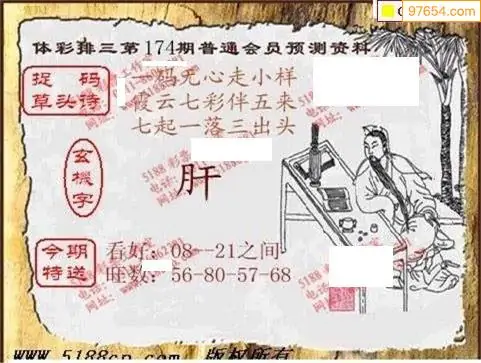 97654.com
体彩排三第174期普通会员预测资料
捉码
草头诗
一码无心走小样
霞云七彩伴五来
七起一落三出头
玄機字
肝
今期
特送
看好:08--21之间
旺数:56-80-57-68
www.5188cp.com 版权所有